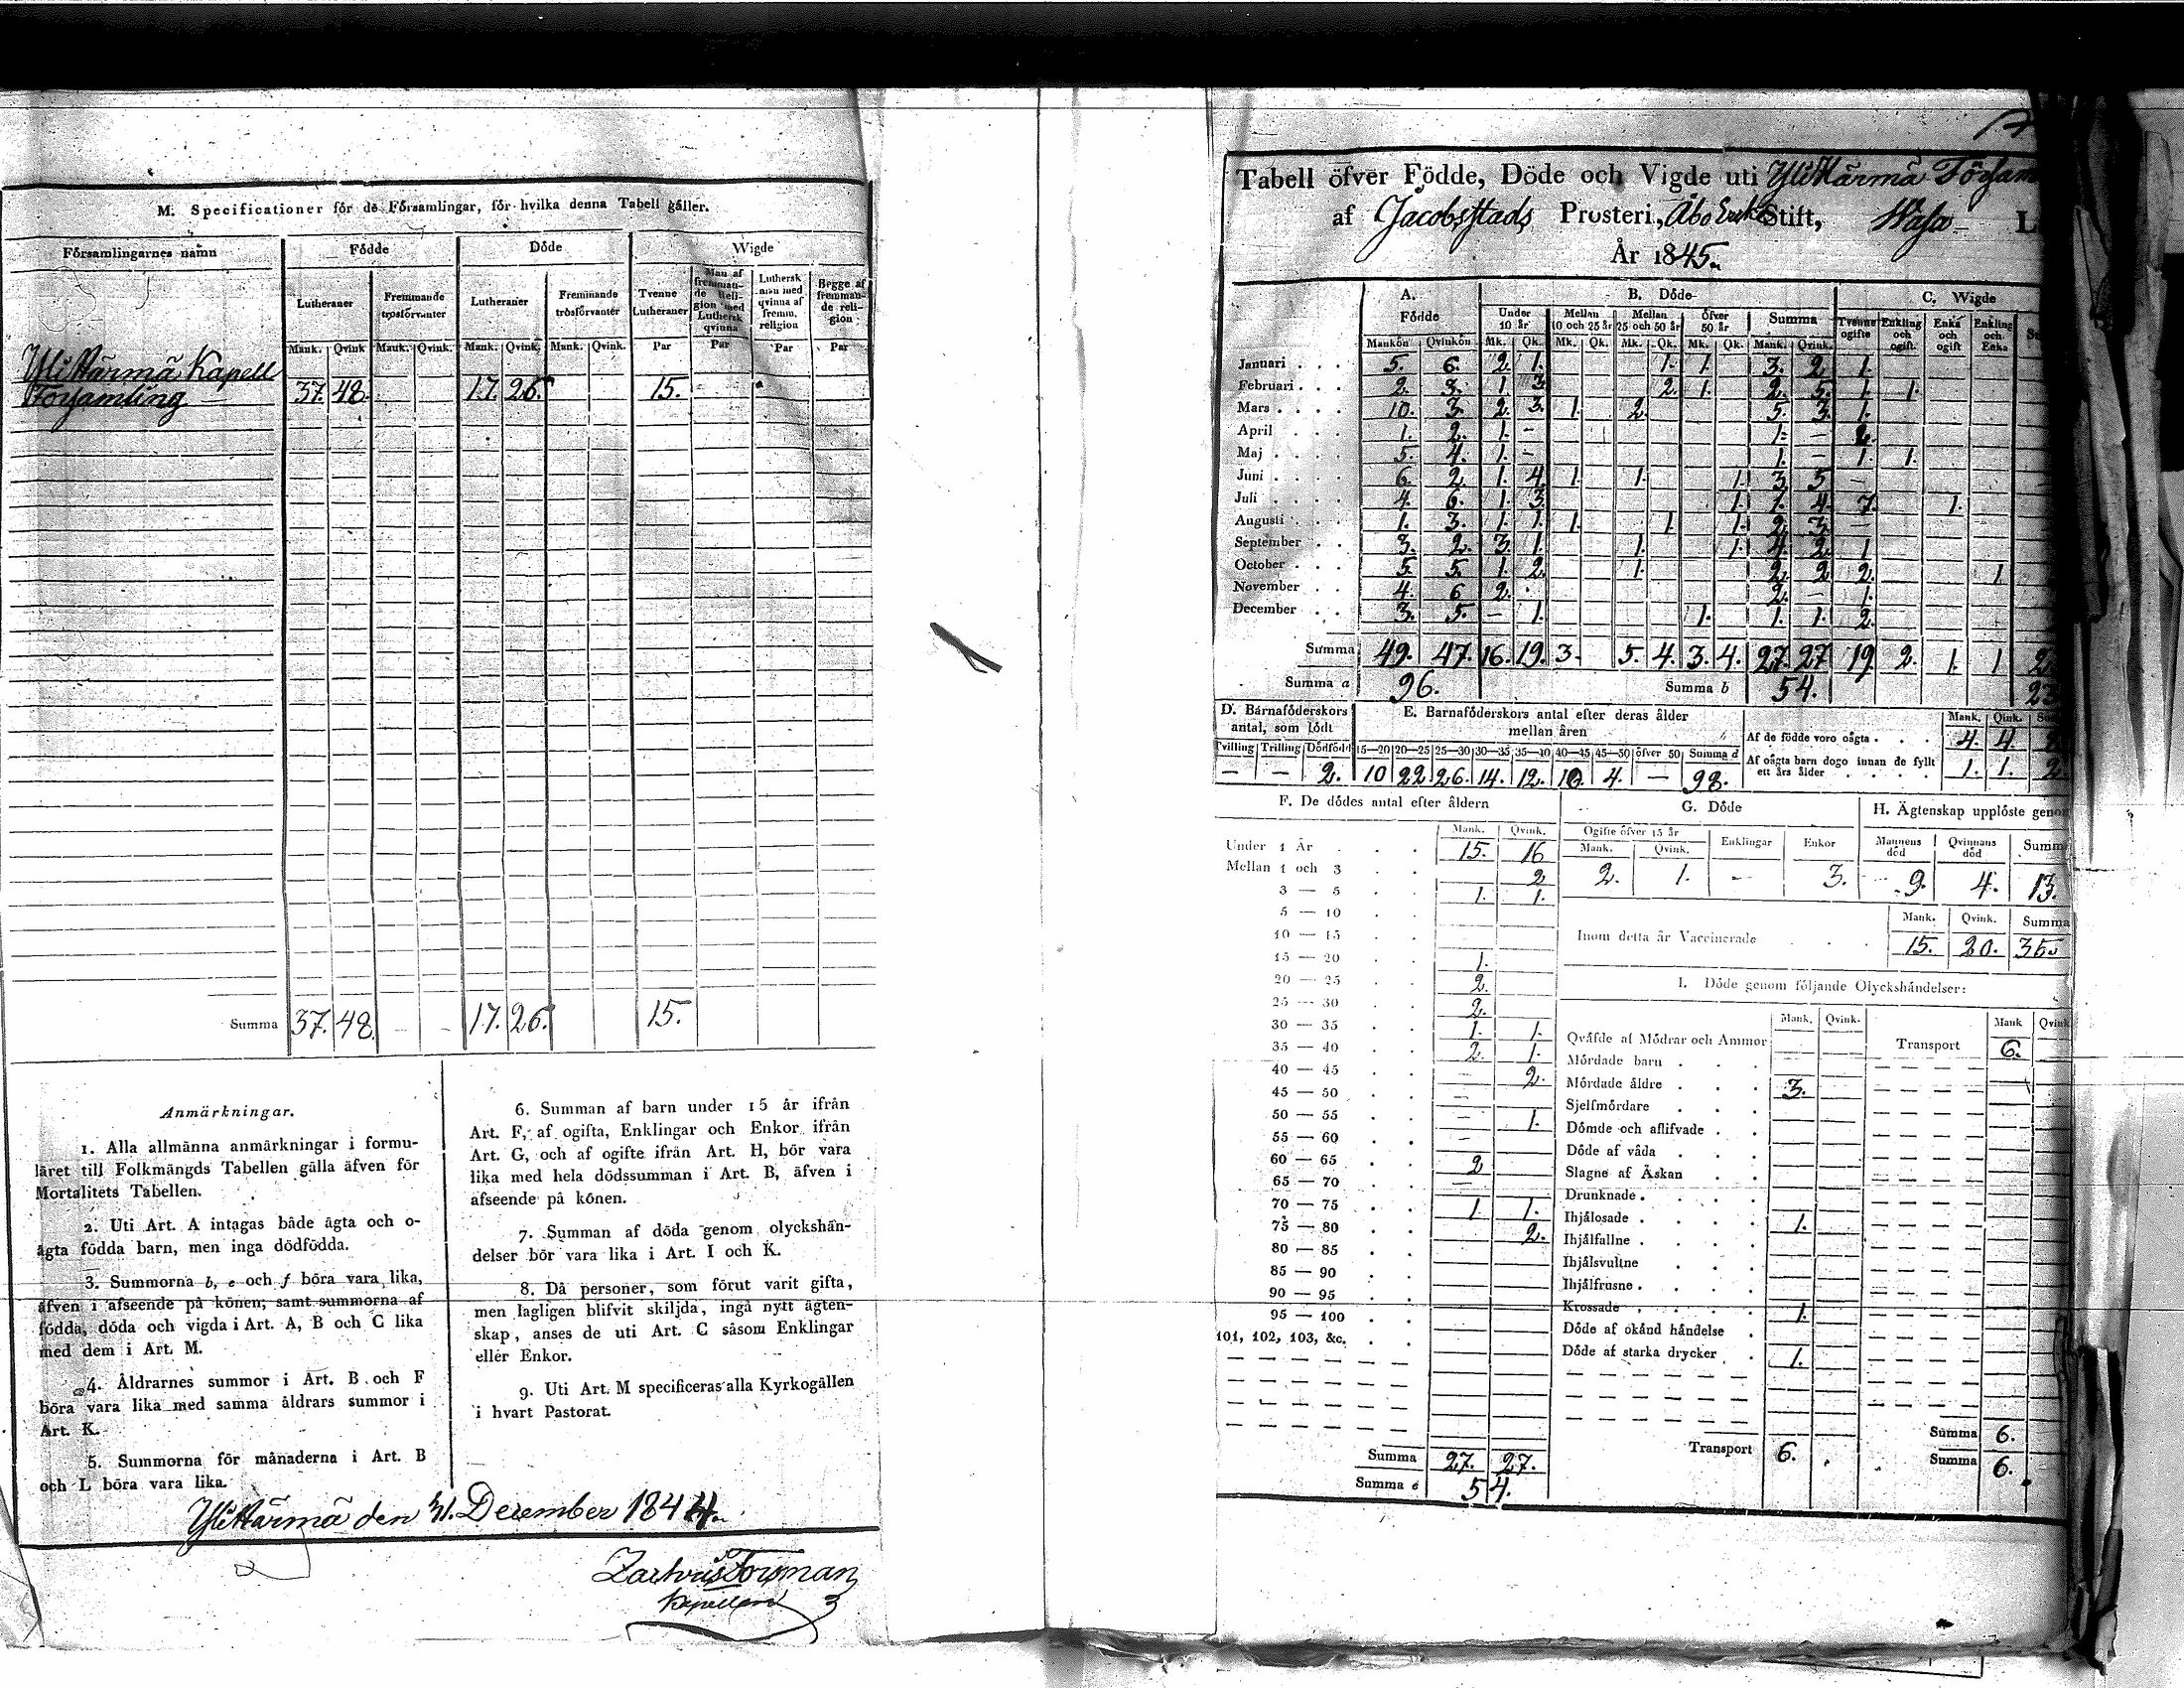 M. Specificationer för de Församlingar, för hvilka denna Tabell gäller.
Församlingarnes namn Födde Döde Wigde
Lutheraner Fremmande trosförvanter Lutheraner Fremmande trosförvanter Tvenne Lutheraner Man af fremmande Religion med Luthersk qvinna Luthersk man med qvinna af fremm. religion Begge af fremmande religion
Mank. Qvink. Mank. Qvink. Mank. Qvink. Mank. Qvink. Par Par Par Par
Ylihärmä Kapell
Församling 37. 48. 17. 26. 15.
Summa 37. 48. - - 17. 26. 15.
Anmärkningar.
1. Alla allmänna anmärkningar i formu-
läret till Folkmängds Tabellen gälla äfven för
Mortalitets Tabellen.
2. Uti Art. A intagas både ägta och o-
ägta födda barn, men inga dödfödda.
3. Summorna b, e och f böra vara lika,
äfven i afseende på könen; samt summorna af
födda, döda och vigda i Art. A, B och C lika
med dem i Art. M.
4. Åldrarnes summor i Art. B och F
böra vara lika med samma åldrars summor i
Art. K.
5. Summorna för månaderna i Art. B
och L böra vara lika.
6. Summan af barn under 15 år ifrån
Art. F, af ogifta, Enklingar och Enkor ifrån
Art. G, och af ogifte ifrån Art. H, bör vara
lika med hela dödssumman i Art. B, äfven i
afseende på könen.
7. Summan af döda genom olyckshän-
delser bör vara lika i Art. I och K.
8. Då personer, som förut varit gifta,
men lagligen blifvit skiljda, ingå nytt ägten-
skap, anses de uti Art. C såsom Enklingar
eller Enkor.
9. Uti Art. M specificeras alla Kyrkogällen
i hvart Pastorat.
Ylihärmä den 31. December 1844.
Forsman
Kapellan
Tabell öfver Födde, Döde och Vigde uti Ylihärmä Försam
af Jacobsstads Prosteri, Åbo Erke Stift, Wasa L
År 1845.
A. B. Döde C. Wigde
Födde Under 10 år Mellan 10 och 25 år Mellan 25 och 50 år Öfver 50 år Summa Tvenne ogifte Enkling och ogift. Enka och ogift Enkling och Enka
Mankön Qvinkön Mk. Qk. Mk. Qk. Mk. Qk. Mk. Qk. Mank. Qvink.
Januari . . . 5. 6. 2. 1. 1. 1. 3. 2. 1.
Februari . . . 2. 3. 1. 3. 2. 1. 2. 5. 1. 1.
Mars . . . . 10. 3. 2. 3. 1. 2. 5. 3. 1.
April . . . 1. 2. 1. - 1. - 2.
Maj . . . . 5. 4. 1. - 1. - 1. 1.
Juni . . . . 6. 2. 1. 4. 1. 1. 1. 3. 5 -
Juli . . . . 4. 6. 1. 3. 1. 1. 4. 7. 1.
Augusti . . . 1. 3. 1. 1. 1. 1. 1. 2. 3. -
September . . 3. 2. 3. 1. 1. 1. 4. 2. 1
October . . . 5. 5. 1. 2. 1. 2. 2. 2. 1
November . . 4. 6 2. 2. - 1.
December . . 3. 5. - 1. 1. 1. 1. 2.
Summa 49. 47. 16. 19. 3. 5. 4. 3. 4. 27. 27 19 2. 1. 1
Summa a 96. Summa b 54. 23
D. Barnaföderskors antal, som födt
Tvilling Trilling Dödfödd
- - 2.
E. Barnaföderskors antal efter deras ålder
mellan åren
15—20 20—25 25—30 30—35 35—40 40—45 45—50 öfver 50 Summa d
10 22 26. 14. 12. 10. 4. — 98.
Mank. Qink.
Af de födde voro oägta . . . 4. 4.
Af oägta barn dogo innan de fyllt
ett års ålder . . . . 1. 1. 2.
F. De dödes antal efter åldern
Mank. Qvink.
Under 1 År . . . 15. 16
Mellan 1 och 3 . . 2
3 — 5 . . 1. 1.
5 — 10 . .
10 — 15 . .
15 — 20 . . 1.
20 — 25 . . 2.
25 — 30 . . 2.
30 — 35 . . 1. 1.
35 — 40 . . 2. 1.
40 — 45 . . 2.
45 — 50 . . -
50 — 55 . . - 1.
55 — 60 . . -
60 — 65 . . 2
65 — 70 . . -
70 — 75 . . 1 1.
75 — 80 . . 2.
80 — 85 . .
85 — 90 . .
90 — 95 . .
95 — 100 . .
101, 102, 103, &c. . .
Summa 27. 27.
Summa e 54.
G. Döde
Ogifte öfver 15 år Enklingar Enkor
Mank. Qvink.
2. 1. - 3.
H. Ägtenskap upplöste genom
Mannens död Qvinnans död Summa
9. 4. 13.
Mank. Qvink. Summa
Inom detta år Vaccinerade . . . 15. 20. 35.
I. Döde genom följande Olyckshändelser:
Mank. Qvink. Mank Qvink
Qväfde af Mödrar och Ammor Transport 6.
Mördade barn . . .
Mördade äldre . . . 3.
Sjelfmördare . . .
Dömde och aflifvade . .
Döde af våda . . .
Slagne af Åskan . .
Drunknade . . . .
Ihjälosade . . . . 1.
Ihjälfallne . . . .
Ihjälsvultne . . .
Ihjälfrusne . . . .
Krossade . . . . 1.
Döde af okänd händelse .
Döde af starka drycker . . 1.
Summa 6.
Transport 6. Summa 6.